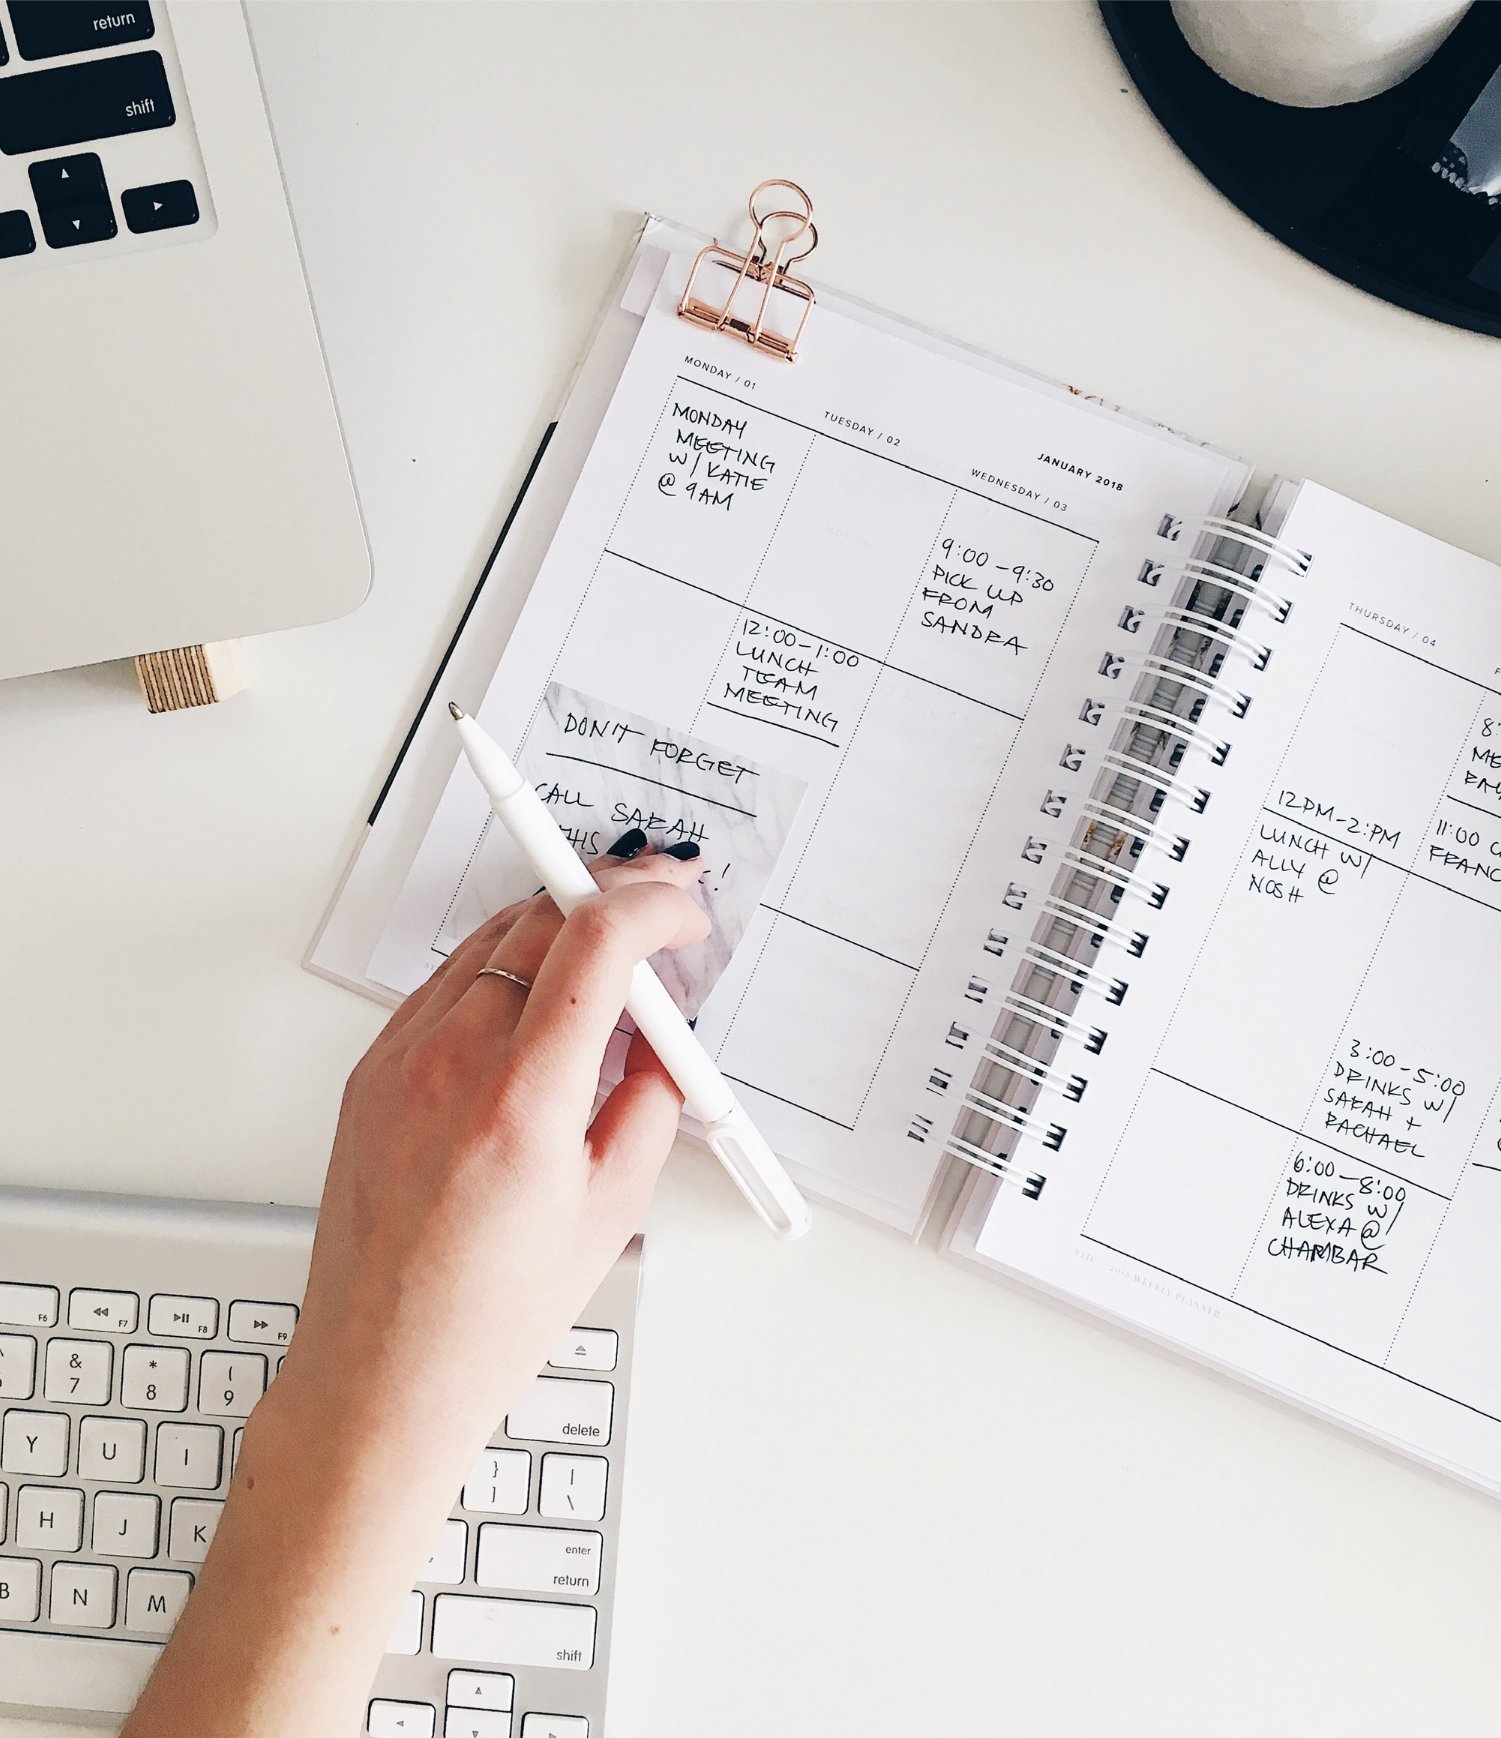 return
shift
MONDAY / 01
TUESDAY / 02
JANUARY 2018
WEDNESDAY / 03
MONDAY
MEETING
W/ KATIE
@ 9AM
9:00-9:30
PICK UP
FROM
SANDRA
12:00-1:00
LUNCH
TEAM
MEETING
DON'T FORGET
CALL SARAH
THIS
!
THURSDAY / 04
12PM-2:PM
LUNCH W/
ALLY @
NOSH
8:
11:00
3:00-5:00
DRINKS W/
SARAH +
RACHAEL
6:00-8:00
DRINKS W/
ALEXA @
CHAMBAR
2018 WEEKLY PLANNER
F6 F7 F8 F9
& 7 * 8 ( 9
delete
Y U I } ] | \
H J K
enter
return
B N M
shift